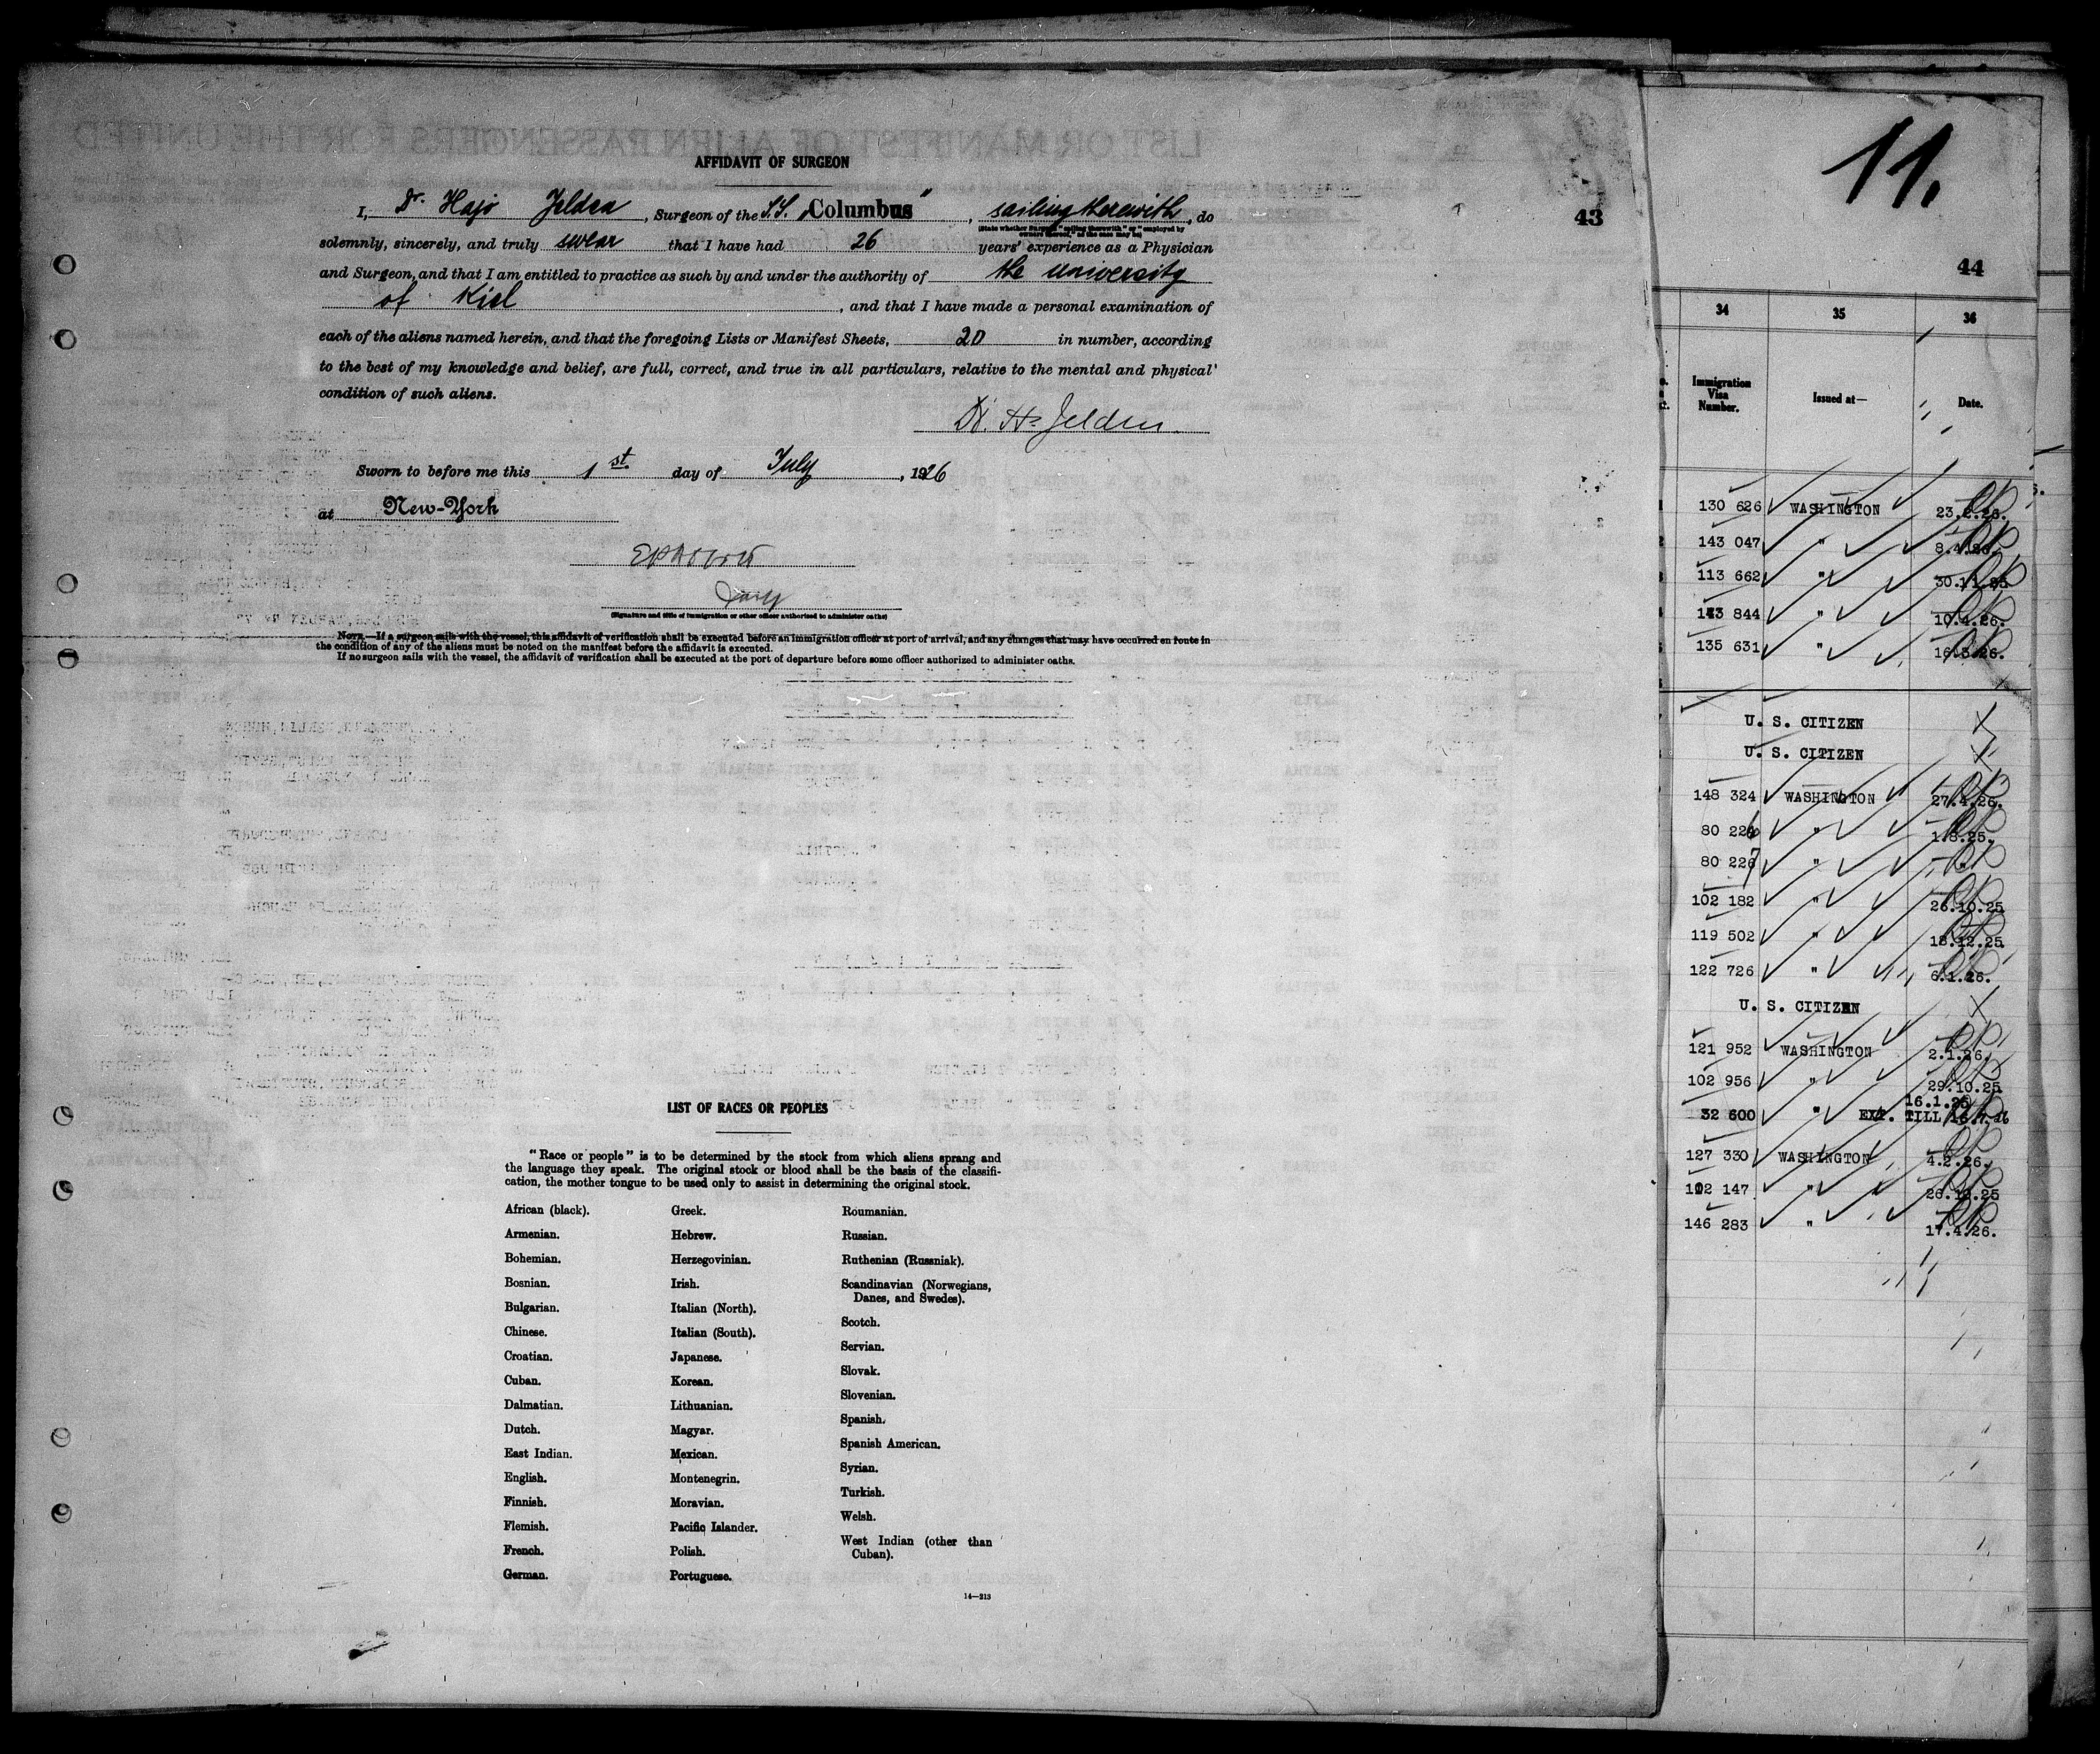 AFFIDAVIT OF SURGEON
I, Dr. Hajo Jelden, Surgeon of the S.S. „Columbus", sailing therewith, do
(State whether Surgeon "sailing therewith" or "employed by owners thereof," as the case may be)
solemnly, sincerely, and truly swear that I have had 26 years' experience as a Physician
and Surgeon, and that I am entitled to practice as such by and under the authority of the university
of Kiel, and that I have made a personal examination of
each of the aliens named herein, and that the foregoing Lists or Manifest Sheets, 20 in number, according
to the best of my knowledge and belief, are full, correct, and true in all particulars, relative to the mental and physical
condition of such aliens.
Dr. H. Jelden.
Sworn to before me this 1st. day of July, 1926
at New-York
(Signature and title of immigration or other officer authorized to administer oaths)
NOTE.—If a surgeon sails with the vessel, this affidavit of verification shall be executed before an immigration officer at port of arrival, and any changes that may have occurred en route in
the condition of any of the aliens must be noted on the manifest before the affidavit is executed.
If no surgeon sails with the vessel, the affidavit of verification shall be executed at the port of departure before some officer authorized to administer oaths.
LIST OF RACES OR PEOPLES
"Race or people" is to be determined by the stock from which aliens sprang and
the language they speak. The original stock or blood shall be the basis of the classifi-
cation, the mother tongue to be used only to assist in determining the original stock.
African (black).
Armenian.
Bohemian.
Bosnian.
Bulgarian.
Chinese.
Croatian.
Cuban.
Dalmatian.
Dutch.
East Indian.
English.
Finnish.
Flemish.
French.
German.
Greek.
Hebrew.
Herzegovinian.
Irish.
Italian (North).
Italian (South).
Japanese.
Korean.
Lithuanian.
Magyar.
Mexican.
Montenegrin.
Moravian.
Pacific Islander.
Polish.
Portuguese.
Roumanian.
Russian.
Ruthenian (Russniak).
Scandinavian (Norwegians,
Danes, and Swedes).
Scotch.
Servian.
Slovak.
Slovenian.
Spanish.
Spanish American.
Syrian.
Turkish.
Welsh.
West Indian (other than
Cuban).
14—213
43
11.
44
34 35 36
Immigration Visa Number. Issued at— Date.
130 626 WASHINGTON 23.2.26.
143 047 " 8.4.26.
113 662 " 30.11.25
143 844 " 10.4.26.
135 631 " 16.3.26.
U. S. CITIZEN
U. S. CITIZEN
148 324 WASHINGTON 27.4.26.
80 226 " 1.8.25.
80 227 " "
102 182 " 26.10.25
119 502 " 18.12.25
122 726 " 6.1.26.
U. S. CITIZEN
121 952 WASHINGTON 2.1.26.
102 956 " 29.10.25
16.1.25
32 600 " EXT. TILL 16.7.26
127 330 WASHINGTON 4.2.26.
102 147 " 26.10.25
146 283 " 17.4.26.